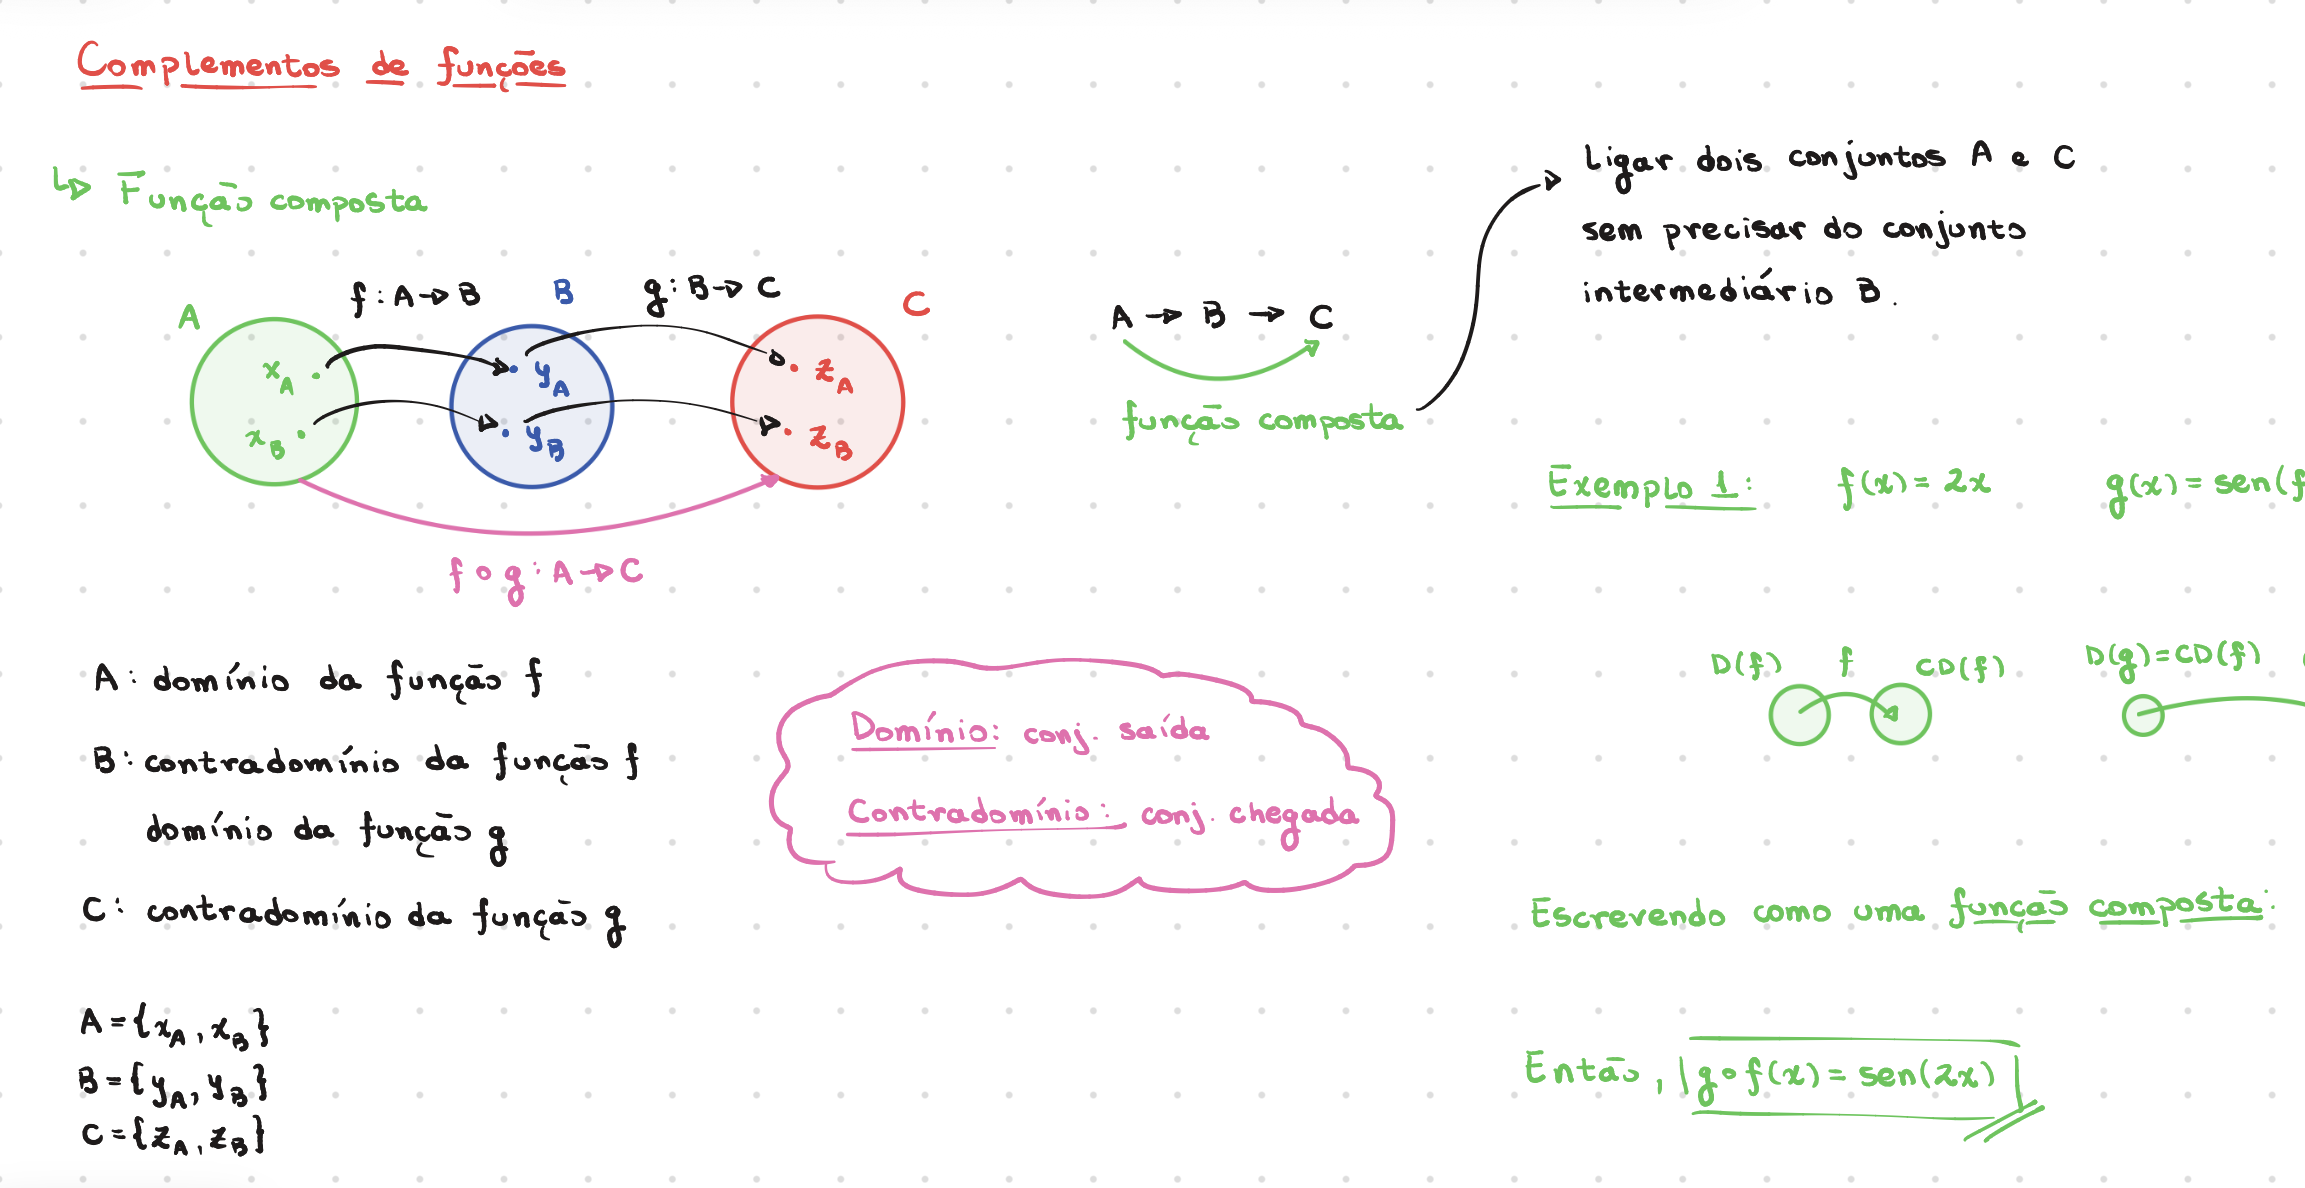 Complementos de funções
↳ Função composta
f: A → B
B
g: B → C
A
C
x_A
x_B
y_A
y_B
z_A
z_B
f ∘ g: A → C
A → B → C
função composta
Ligar dois conjuntos A e C
sem precisar do conjunto
intermediário B.
A: domínio da função f
B: contradomínio da função f
domínio da função g
C: contradomínio da função g
A = {x_A, x_B}
B = {y_A, y_B}
C = {z_A, z_B}
Domínio: conj. saída
Contradomínio: conj. chegada
Exemplo 1: f(x) = 2x g(x) = sen(f
D(f) f CD(f) D(g) = CD(f)
Escrevendo como uma função composta:
Então, g∘f(x) = sen(2x)